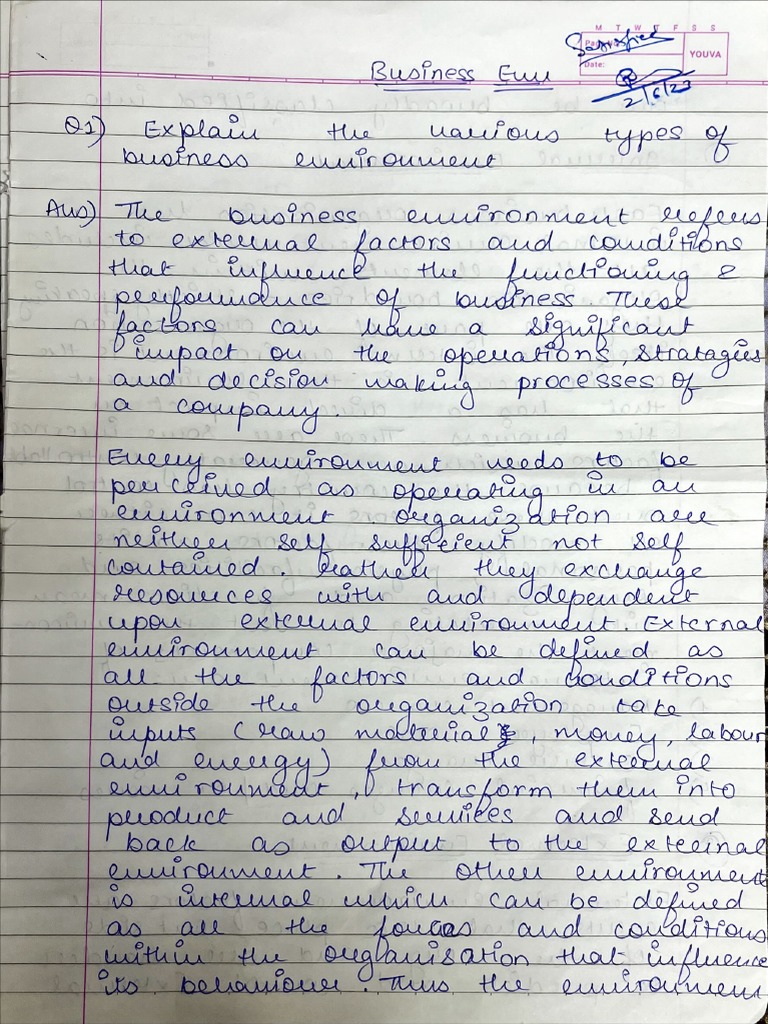 M T W T F S S
Satisfied
Page No.:
Date:
YOUVA
2/6/23
Business Env
Q1) Explain the various types of
business environment
Ans) The business environment refers
to external factors and conditions
that influence the functioning &
performance of business These
factors can have a significant
impact on the operations, stratagies
and decision making processes of
a company
Every environment needs to be
perceived as operating in an
environment. organization are
neither self sufficient not self
contained. Rather they exchange
resources with and dependent
upon external environment. External
environment can be defined as
all the factors and conditions
outside the organization take
inputs (raw material, money, labour
and energy) from the external
environment, transform them into
product and services and send
back as output to the external
environment. The other environment
is internal which can be defined
as all the forces and conditions
within the organisation that influence
its behaviour. Thus the environment